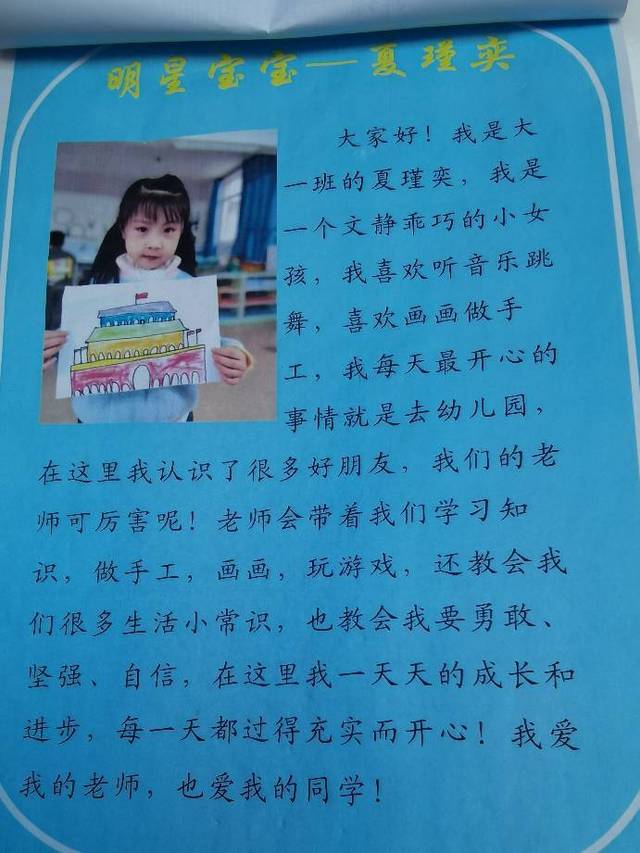 明星宝宝—夏瑾奕
大家好！我是大
一班的夏瑾奕，我是
一个文静乖巧的小女
孩，我喜欢听音乐跳
舞，喜欢画画做手
工，我每天最开心的
事情就是去幼儿园，
在这里我认识了很多好朋友，我们的老
师可厉害呢！老师会带着我们学习知
识，做手工，画画，玩游戏，还教会我
们很多生活小常识，也教会我要勇敢、
坚强、自信，在这里我一天天的成长和
进步，每一天都过得充实而开心！我爱
我的老师，也爱我的同学！